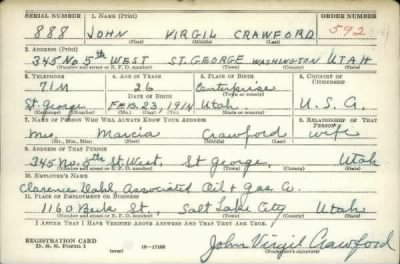 SERIAL NUMBER 1. NAME (Print) ORDER NUMBER
888 JOHN VIRGIL CRAWFORD 592
(First) (Middle) (Last)
2. ADDRESS (Print)
345 NO. 5th WEST ST. GEORGE WASHINGTON UTAH
(Number and street or R. F. D. number) (Town) (County) (State)
3. TELEPHONE 4. AGE IN YEARS 5. PLACE OF BIRTH 6. COUNTRY OF CITIZENSHIP
71M 26 Enterprise
DATE OF BIRTH (Town or county)
St. George FEB. 23, 1914 Utah U. S. A.
(Exchange) (Number) (Mo.) (Day) (Yr.) (State or country)
7. NAME OF PERSON WHO WILL ALWAYS KNOW YOUR ADDRESS 8. RELATIONSHIP OF THAT PERSON
Mrs. Marcia Crawford wife
(Mr., Mrs., Miss) (First) (Middle) (Last)
9. ADDRESS OF THAT PERSON
345 No. 5th St. West, St George, Utah
(Number and street or R. F. D. number) (Town) (County) (State)
10. EMPLOYER'S NAME
Clarence Associated Oil & Gas Co.
11. PLACE OF EMPLOYMENT OR BUSINESS
1160 Beck St., Salt Lake City Utah
(Number and street or R. F. D. number) (Town) (County) (State)
I AFFIRM THAT I HAVE VERIFIED ABOVE ANSWERS AND THAT THEY ARE TRUE.
REGISTRATION CARD
D. S. S. Form 1 (over) 16-17105 John Virgil Crawford